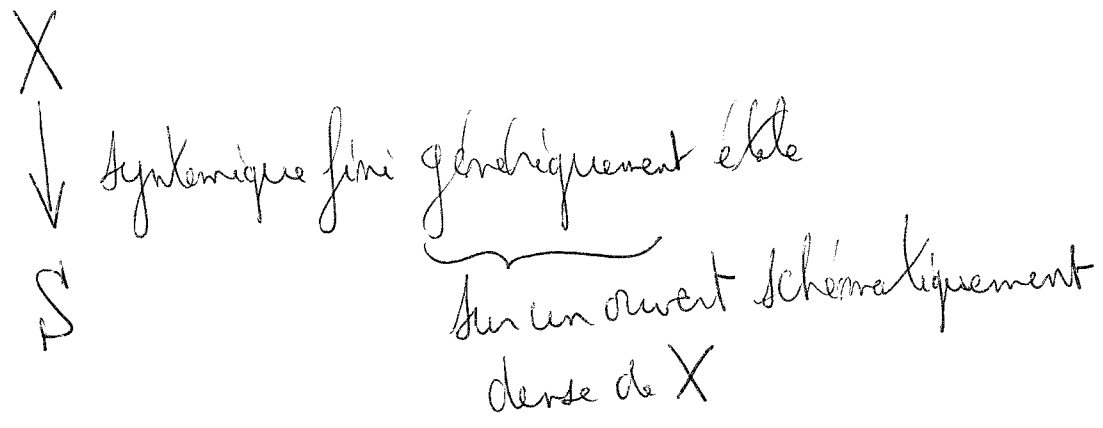 X
syntomique fini génériquement étale
S
sur un ouvert schématiquement
dense de X